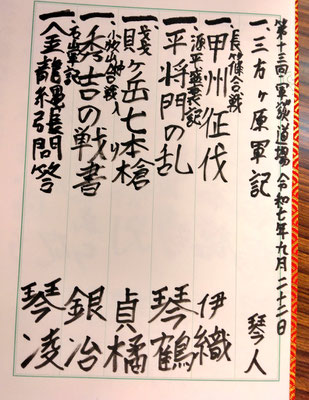 第十三回 軍談道場 令和七年九月二十二日
一三方ヶ原軍記 琴人
、長篠合戦
一甲州征伐 伊織
、源平盛衰記
一平将門の乱 琴鶴
ヶ岳七本槍 貞橘
小牧山合戦
一秀吉の戦書 銀冶
軍記
縄張問答 琴凌